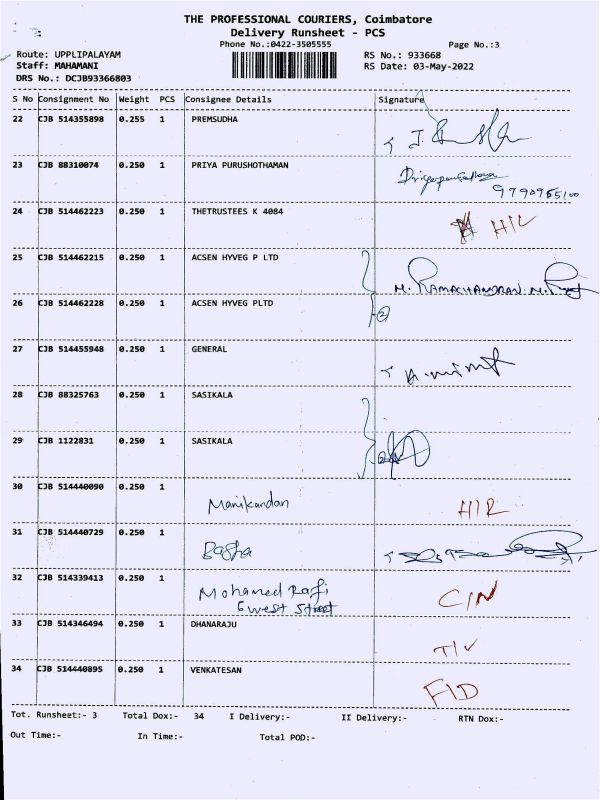 THE PROFESSIONAL COURIERS, Coimbatore
Delivery Runsheet - PCS
Phone No.:0422-3505555
Page No.:3
Route: UPPLIPALAYAM
RS No.: 933668
Staff: MAHAMANI
RS Date: 03-May-2022
DRS No.: DCJB93366803
S No Consignment No Weight PCS Consignee Details Signature
22 CJB 514355898 0.255 1 PREMSUDHA
23 CJB 88310074 0.250 1 PRIYA PURUSHOTHAMAN
24 CJB 514462223 0.250 1 THETRUSTEES K 4084
25 CJB 514462215 0.250 1 ACSEN HYVEG P LTD
M. RAMACHANDRAN.
26 CJB 514462228 0.250 1 ACSEN HYVEG PLTD
27 CJB 514455948 0.250 1 GENERAL
28 CJB 88325763 0.250 1 SASIKALA
29 CJB 1122831 0.250 1 SASIKALA
30 CJB 514440090 0.250 1
Manikandan
31 CJB 514440729 0.250 1
Basha
32 CJB 514339413 0.250 1 Mohamed Rafi
6 west Street
C/N
33 CJB 514346494 0.250 1 DHANARAJU
34 CJB 514440895 0.250 1 VENKATESAN
Tot. Runsheet:- 3 Total Dox:- 34 I Delivery:- II Delivery:- RTN Dox:-
Out Time:- In Time:- Total POD:-